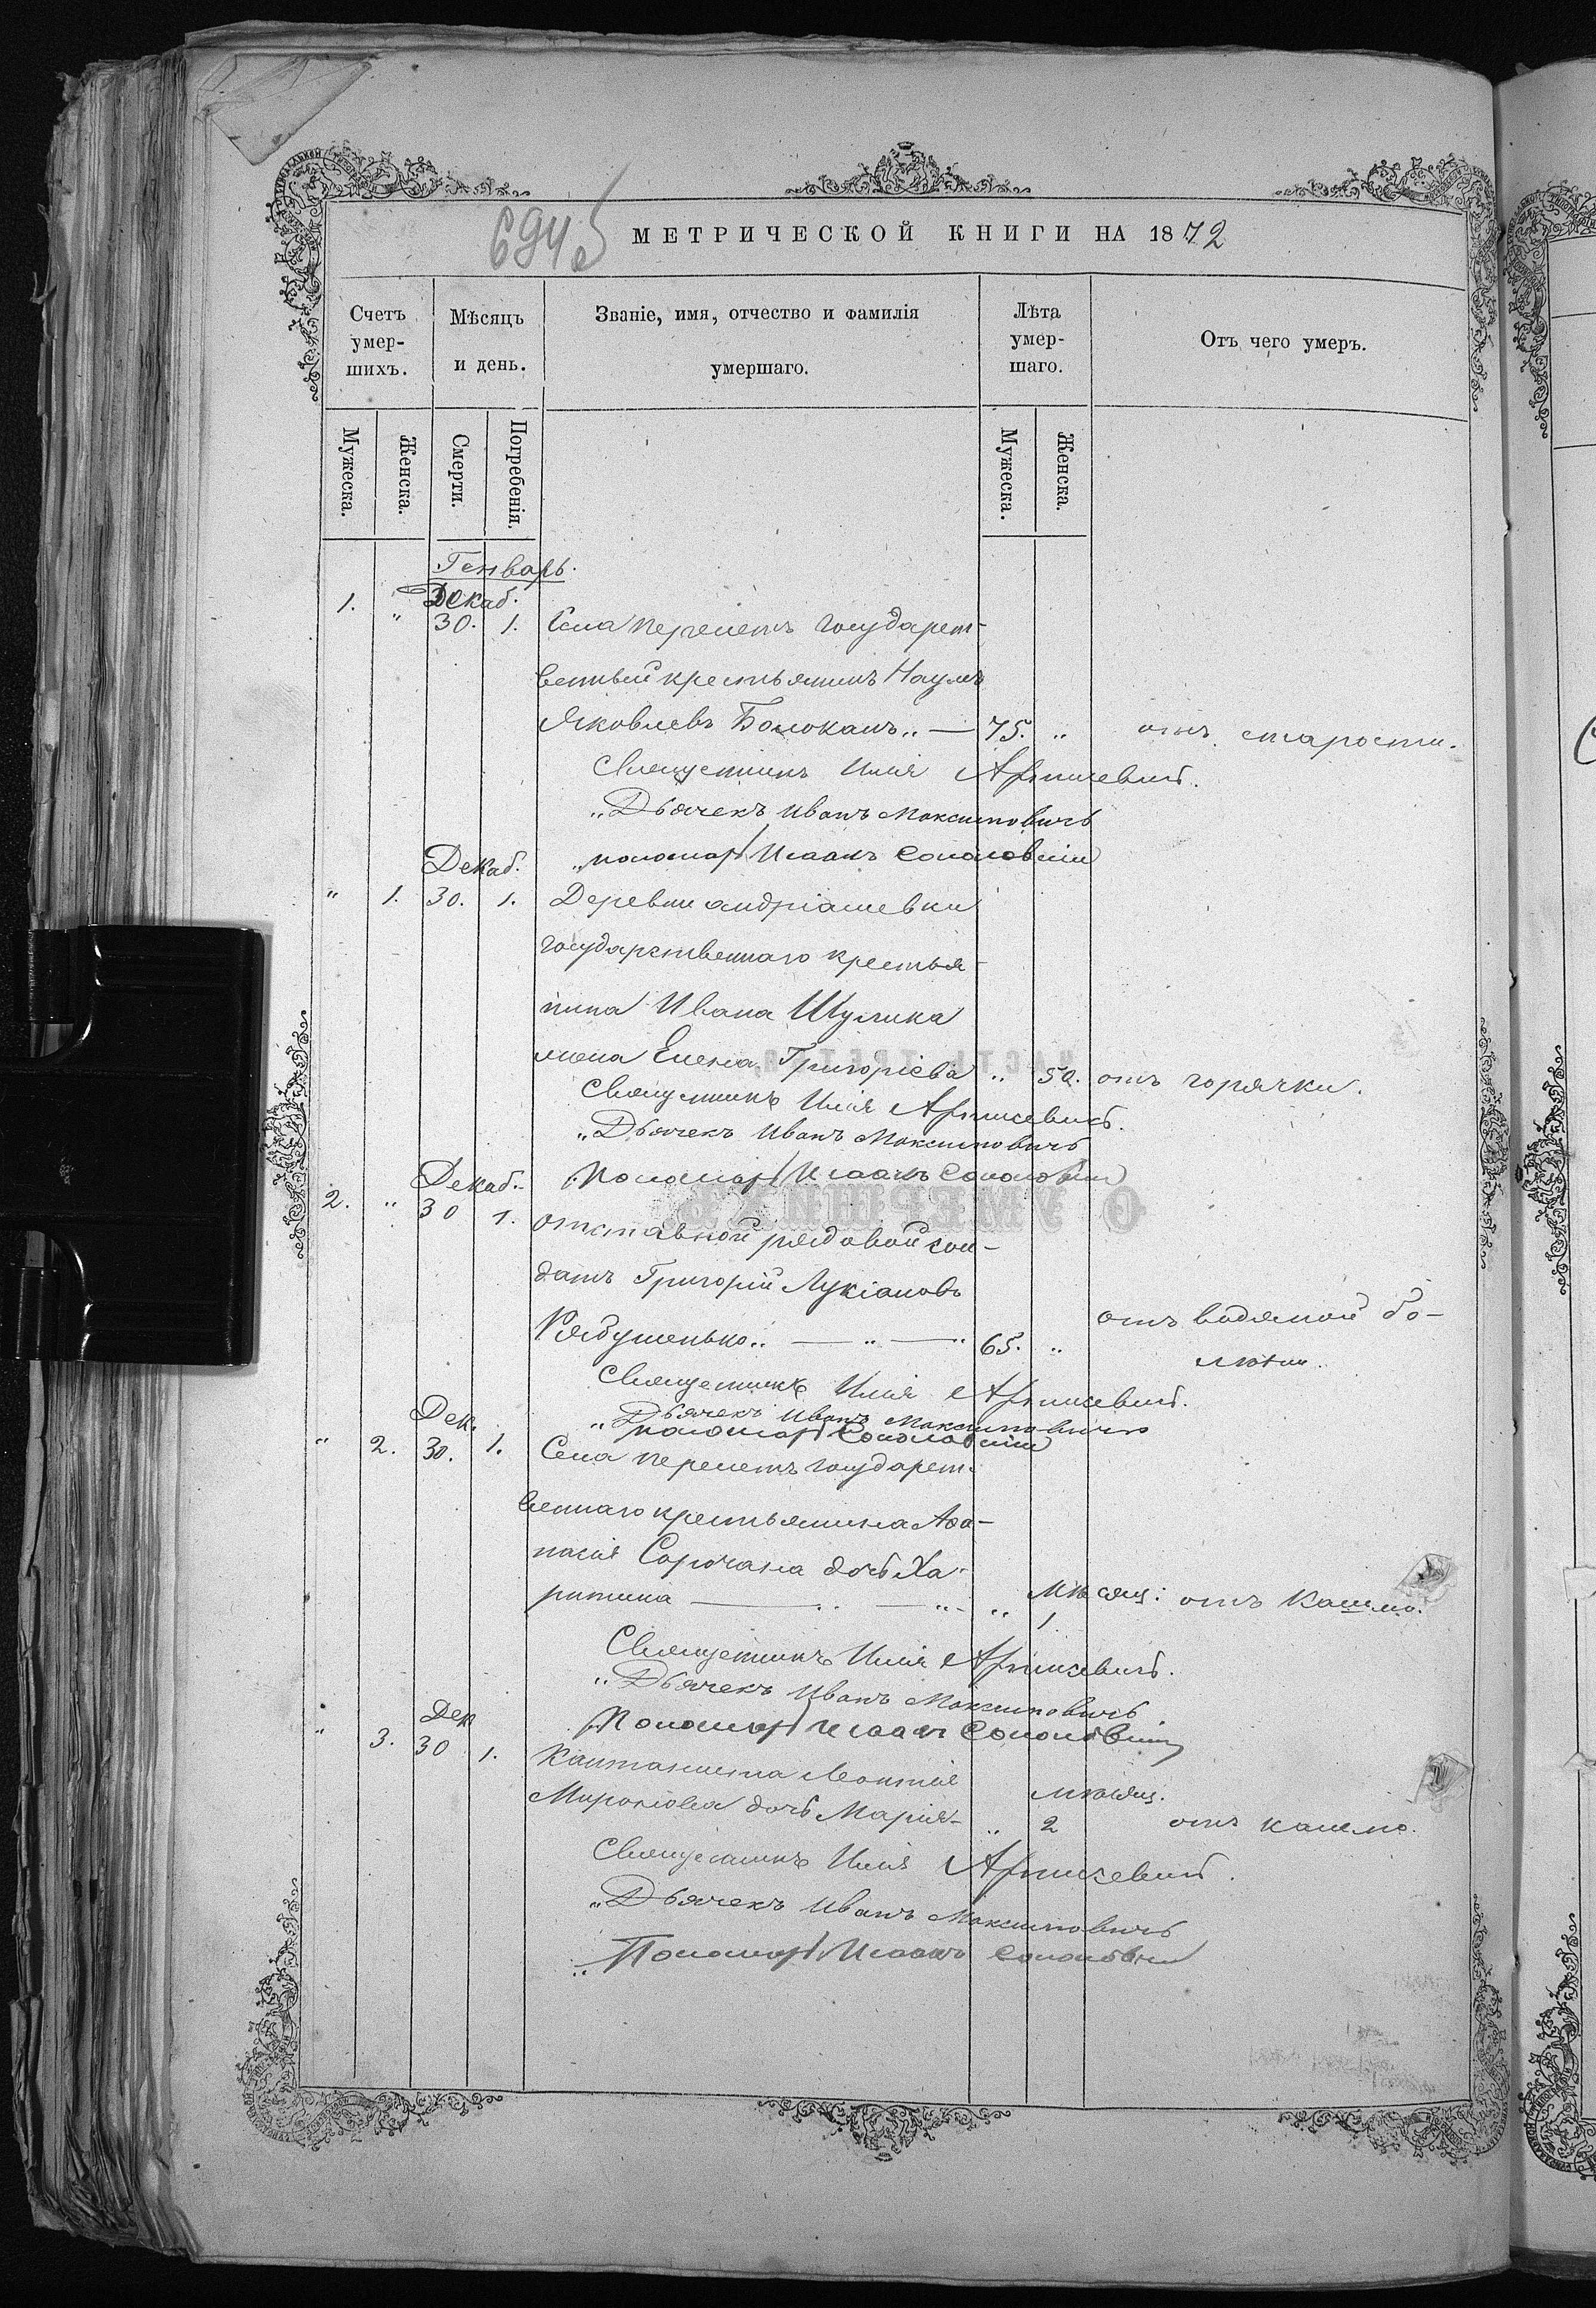 694об
МЕТРИЧЕСКОЙ КНИГИ НА 1872
Счетъ умер-шихъ.
Мѣсяцъ и день.
Званіе, имя, отчество и фамилія умершаго.
Лѣта умер-шаго.
Отъ чего умеръ.
Мужеска. Женска. Смерти. Погребенія. Мужеска. Женска.
Генварь.
Декаб.
1. " 30. 1. Села Перелетъ государст-
венный крестьянинъ Наумъ
Яковлевъ Болоканъ.. — 75. " отъ старости.
Священникъ Илія
"Дьячекъ Иванъ Максимовичъ
"пономарь Исаакъ Соколовскій
Декаб.
" 1. 30. 1. Деревни Андріяшевки
государственнаго крестья-
нина Ивана Шулика
жена Елена Григоріева " 50. отъ горячки.
Священникъ Илія
"Дьячекъ Иванъ Максимовичъ
Пономарь Исаакъ Соколовскій
Декаб.
2. " 30 1. отставной рядовой сол-
датъ Григорій Лукіановъ
Рябушенько.. — " — " 65. " отъ водяной бо-
лѣзни.
Священникъ Илія
"Дьячекъ Иванъ Максимовичъ
пономарь Соколовскій
Дек.
" 2. 30. 1. Села Перелетъ государст-
веннаго крестьянина Аѳа-
насія Сорочана дочь Ха-
ритина — " — " " мѣсяц: 1 отъ кашлю.
Священникъ Илія
"Дьячекъ Иванъ Максимовичъ
Пономарь Исаакъ Соколовскій
Дек
" 3. 30 1. Кантониста Леонтія
Миронова дочь Марія- " мѣсяц. 2 отъ кашлю.
Священникъ Илія
"Дьячекъ Иванъ Максимовичъ
"Пономарь Исаакъ Соколовскій